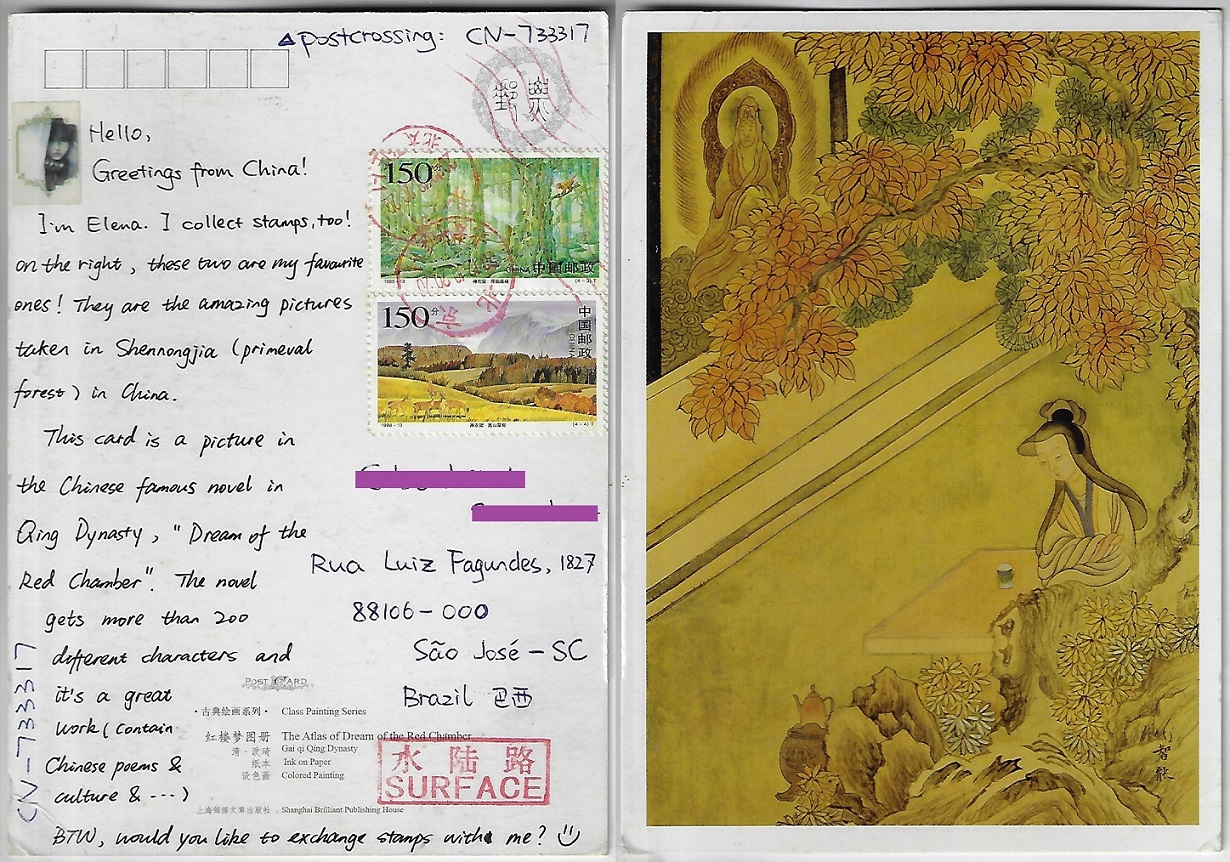 postcrossing: CN-733317
郵票
Hello,
Greetings from China!
I'm Elena. I collect stamps, too!
on the right, these two are my favourite
ones! They are the amazing pictures
taken in Shennongjia (primeval
forest) in China.
This card is a picture in
the Chinese famous novel in
Qing Dynasty, "Dream of the
Red Chamber". The novel
gets more than 200
different characters and
it's a great
work (contain
Chinese poems &
culture & ---)
BTW, would you like to exchange stamps with me?
CN-733317
150分
CHINA 中国邮政
1998-13
(4-3) T
150分
中国邮政
CHINA
1998-13
(4-4) T
Rua Luiz Fagundes, 1827
88106-000
São José - SC
Brazil 巴西
POST CARD
·古典绘画系列· Class Painting Series
红楼梦图册 The Atlas of Dream of the Red Chamber
清·改琦 Gai qi Qing Dynasty
纸本 Ink on Paper
设色画 Colored Painting
水陆路
SURFACE
上海锦绣文章出版社 Shanghai Brilliant Publishing House
智能